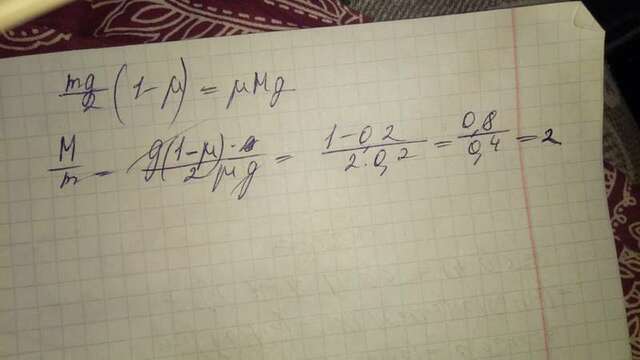 mg/2 (1-μ) = μMg
M/m = g(1-μ)/2μg = 1-0,2/2·0,2 = 0,8/0,4 = 2